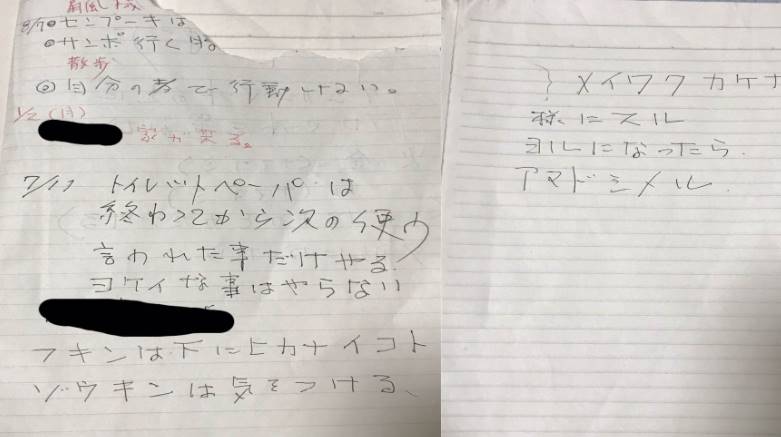 扇風
8/7 センプーキは
サンポ行く時
散歩
自分の考で行動しない。
1/2 (月)
家が来る。
7/11 トイレットペーパは
終わってから次の使う
言われた事だけやる
ヨケイな事はやらない
フキンは下にヒカナイコト
ゾウキンは気をつける、
メイワクカケナ
様にスル
ヨルになったら
アマドシメル